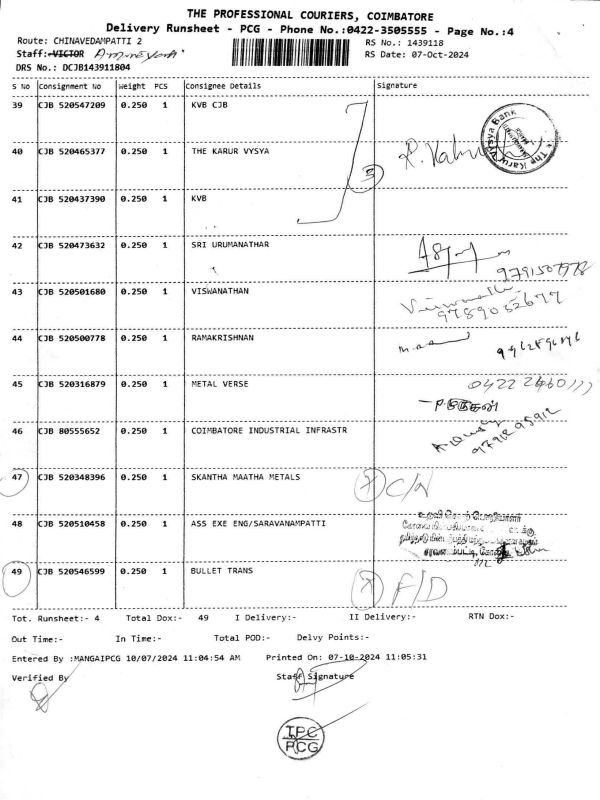 THE PROFESSIONAL COURIERS, COIMBATORE
Delivery Runsheet - PCG - Phone No.:0422-3505555 - Page No.:4
Route: CHINAVEDAMPATTI 2
RS No.: 1439118
Staff: VICTOR
RS Date: 07-Oct-2024
DRS No.: DCJB143911804
S No Consignment No Weight PCS Consignee Details Signature
39 CJB 520547209 0.250 1 KVB CJB
40 CJB 520465377 0.250 1 THE KARUR VYSYA
3
41 CJB 520437390 0.250 1 KVB
42 CJB 520473632 0.250 1 SRI URUMANATHAR
43 CJB 520501680 0.250 1 VISWANATHAN
9789052677
44 CJB 520500778 0.250 1 RAMAKRISHNAN
45 CJB 520316879 0.250 1 METAL VERSE
46 CJB 80555652 0.250 1 COIMBATORE INDUSTRIAL INFRASTR
47 CJB 520348396 0.250 1 SKANTHA MAATHA METALS
C/N
48 CJB 520510458 0.250 1 ASS EXE ENG/SARAVANAMPATTI
உதவி செயற் பொறியாளர்
49 CJB 520546599 0.250 1 BULLET TRANS
F/D
Tot. Runsheet:- 4 Total Dox:- 49 I Delivery:- II Delivery:- RTN Dox:-
Out Time:- In Time:- Total POD:- Delvy Points:-
Entered By :MANGAIPCG 10/07/2024 11:04:54 AM Printed On: 07-10-2024 11:05:31
Verified By Staff Signature
PCG